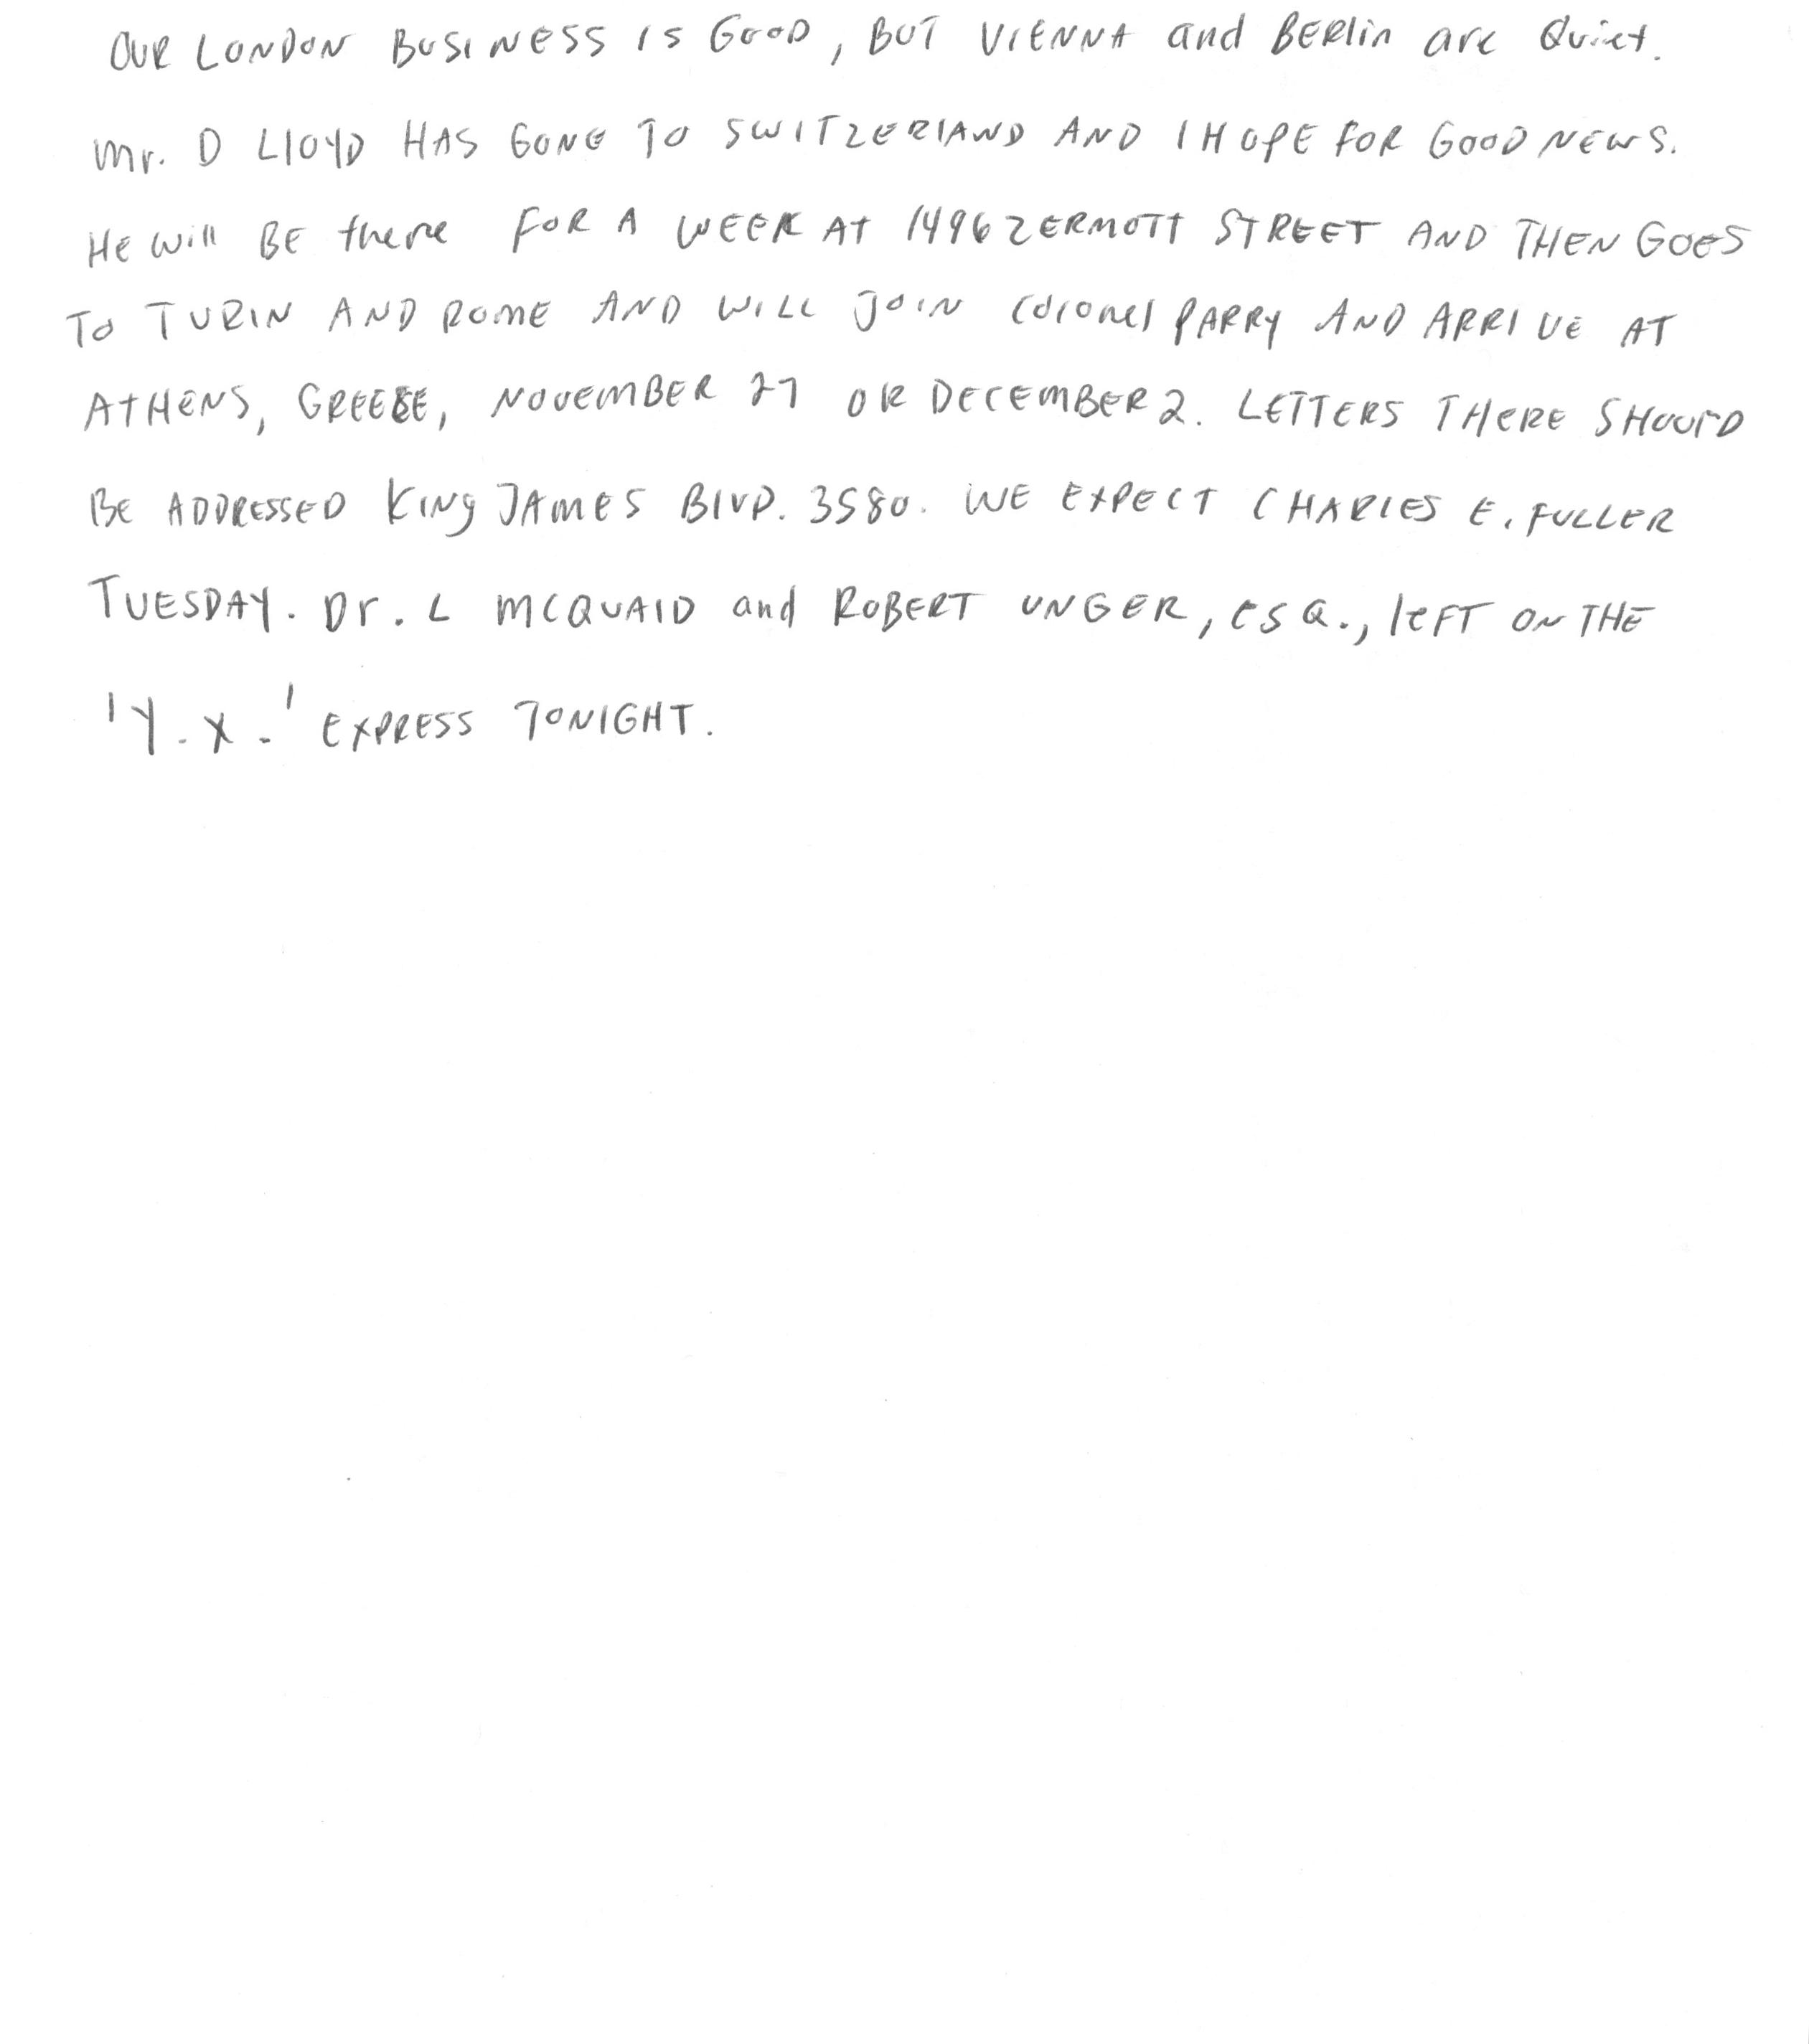 OUR LONDON BUSINESS IS GOOD, BUT VIENNA and BERlin are Quiet.
Mr. D LlOYD HAS GONE TO SWITZERlAND AND I HOPE FOR GOOD NEWS.
HE Will BE there FOR A WEEK AT 1496 ZERMOTT STREET AND THEN GOES
TO TURIN AND ROME AND WILL JOIN Colonel PARRY AND ARRIVE AT
ATHENS, GREECE, NOVEMBER 27 OR DECEMBER 2. LETTERS THERE SHOUlD
BE ADDRESSED KING JAMES BlVD. 3580. WE EXPECT CHARlES E. FULLER
TUESDAY. Dr. L MCQUAID and ROBERT UNGER, ESQ., leFT ON THE
'Y.X.' EXPRESS TONIGHT.